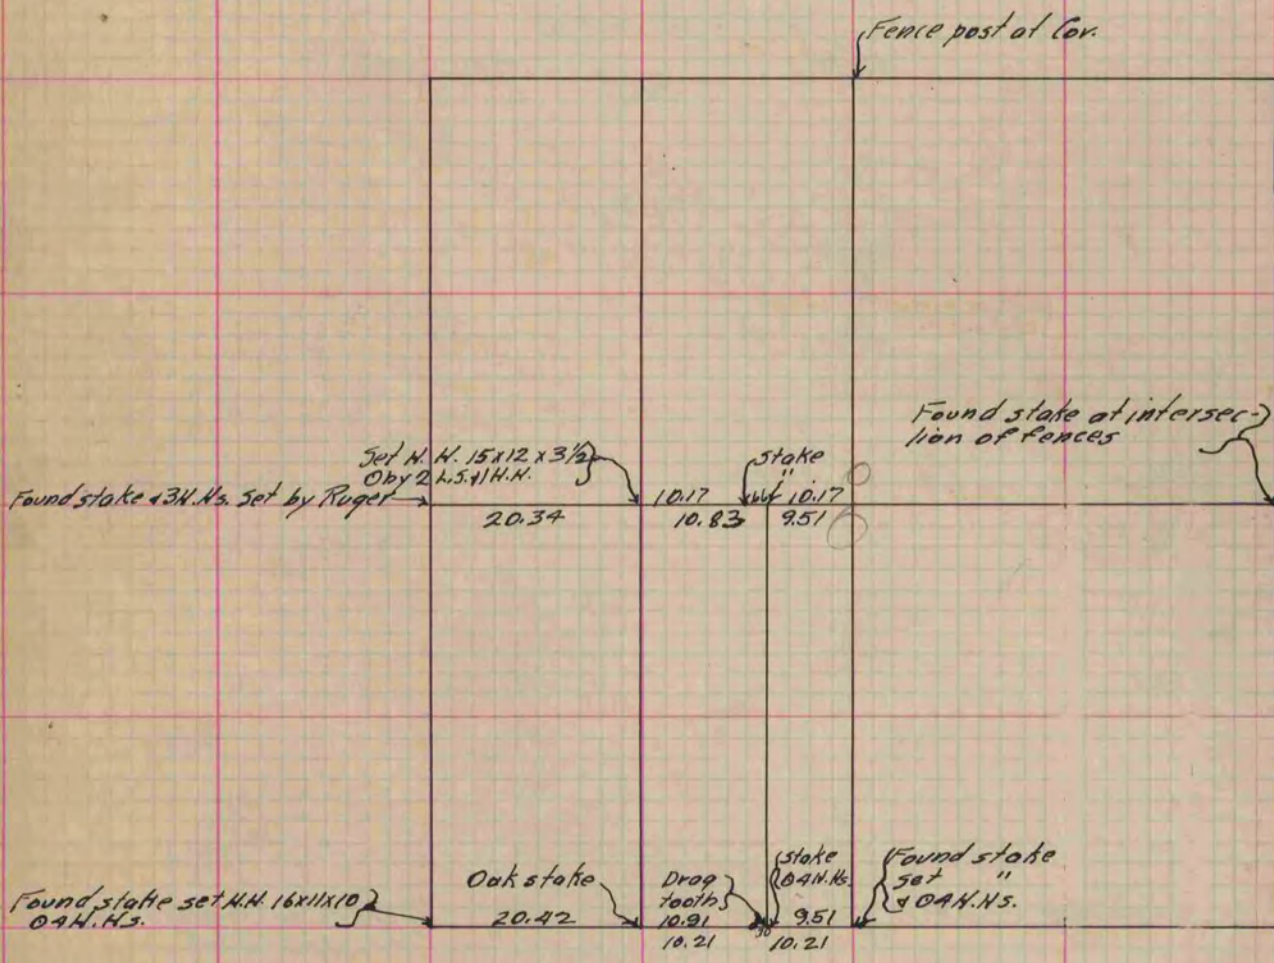 Fence post at Cor.
Found stake at intersec-
tion of fences
Set H.H. 15x12 x 3½
O by 2 L.S. & 1 H.H.
Found stake & 3 H.Hs. Set by Ruger
stake
"
10.17 66 10.17
20.34 10.83 9.51
Oak stake
Drag
tooth
stake
O 4 H.Hs.
Found stake
Set "
& O 4 H.Hs.
Found stake set H.H. 16x11x10
O 4 H.Hs.
20.42
10.91
9.51
10.21
10.21